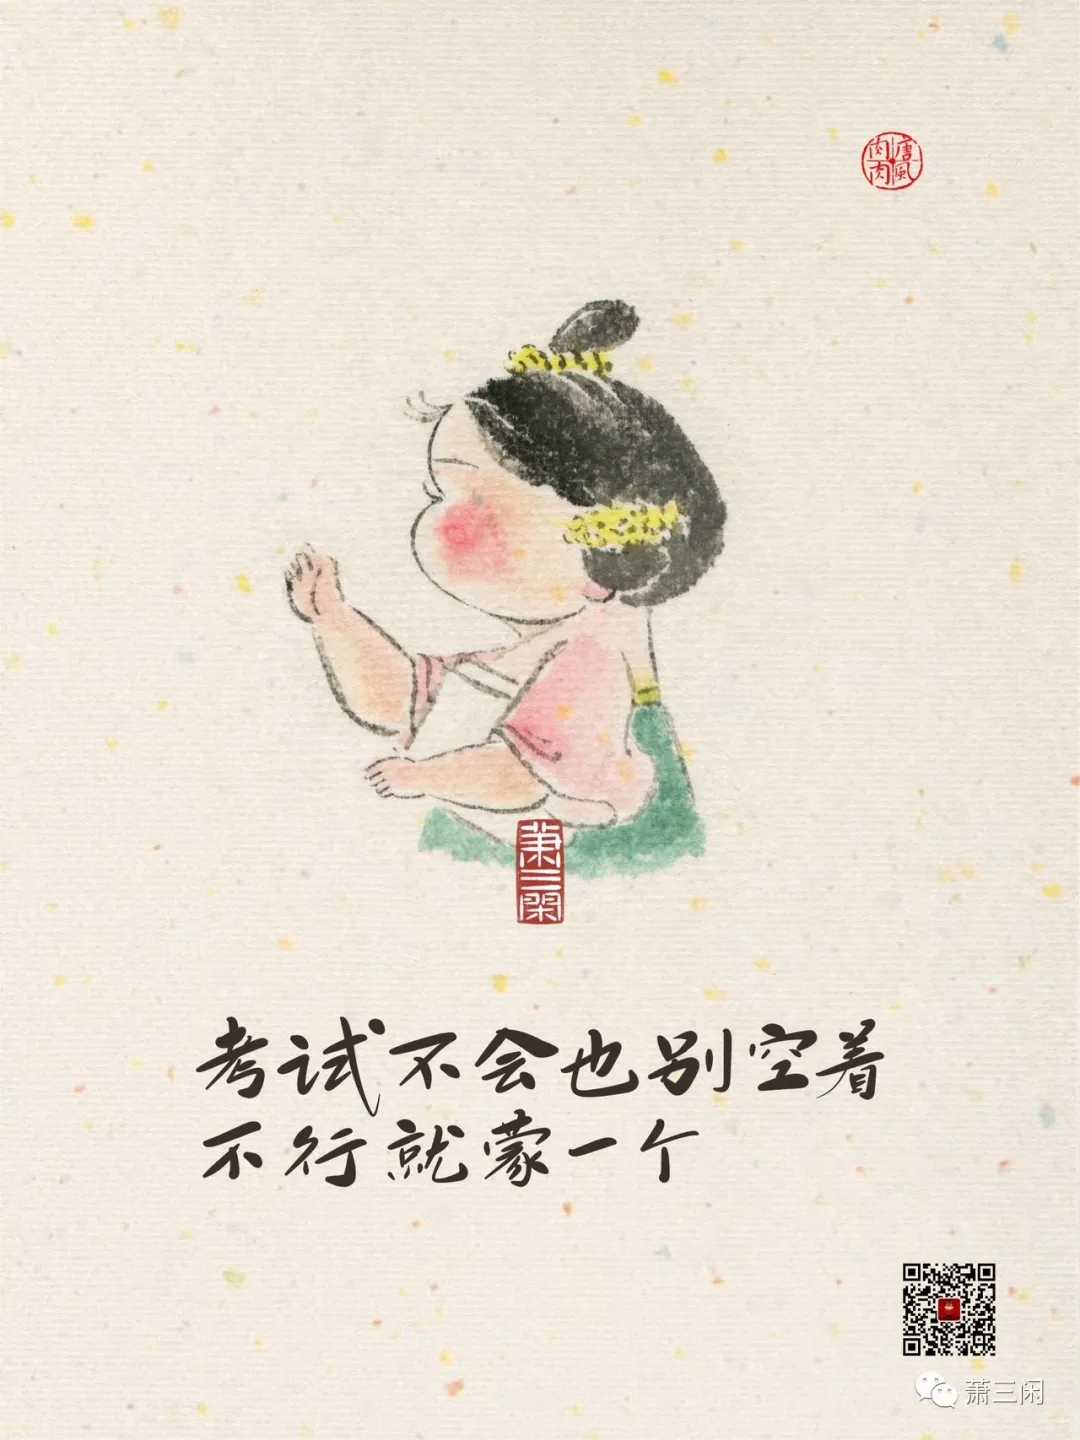 唐風肉肉
萧三閑
考试不会也别空着
不行就蒙一个
萧三闲